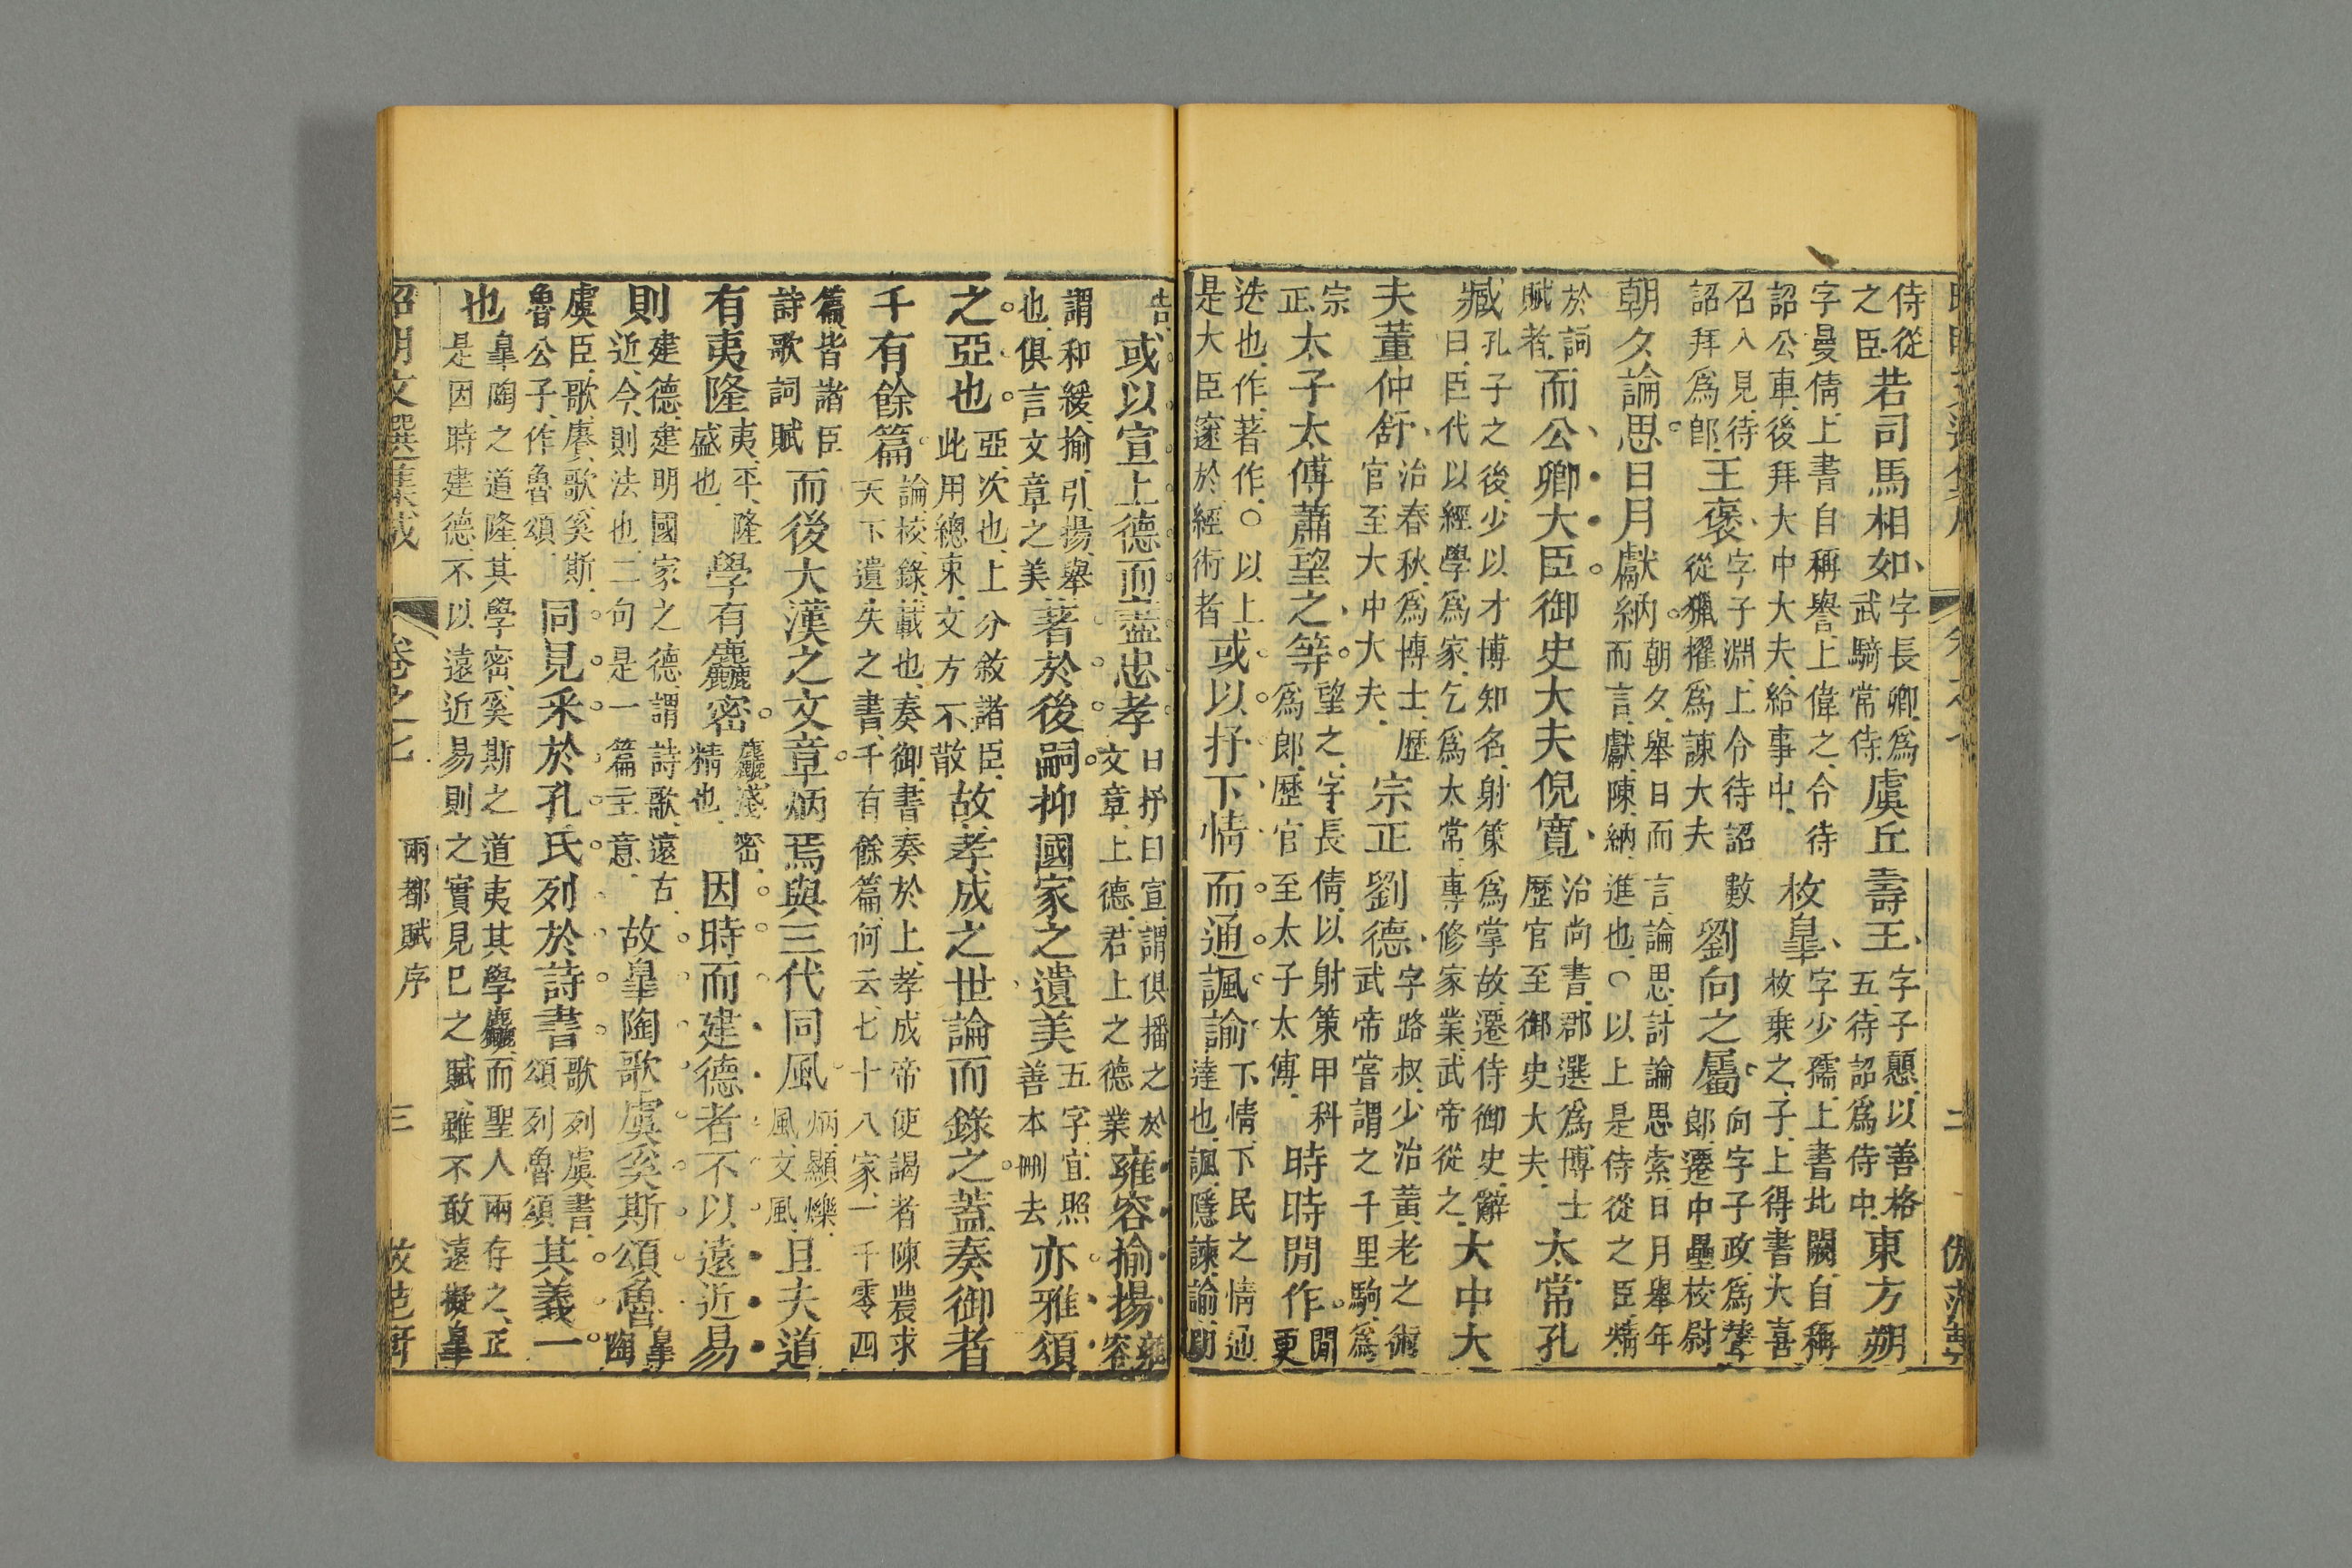 侍從之臣若司馬相如字長卿爲武騎常侍虞丘壽王字子戅以善格五待詔爲侍中東方朔
字曼倩上書自稱譽上偉之令待詔公車後拜大中大夫給事中枚皐字少孺上書北闕自稱枚乗之子上得書大喜
召入見待詔拜爲郎王褒字子淵上令待詔從獵擢爲諫大夫數劉向之屬向字子政爲輦郎遷中壘校尉
朝夕論思日月獻納朝夕舉日而言論思討論思索日月舉年而言獻陳納進也○以上是侍從之臣精
於詞賦者而公卿大臣御史大夫倪寬治尚書郡選爲博士歷官至御史大夫太常孔
臧孔子之後少以才博知名射策爲掌故遷侍御史辭曰臣代以經學爲家乞爲太常專修家業武帝從之大中大
夫董仲舒治春秋爲博士歷官至大中大夫宗正劉德字路叔少治黃老之術武帝嘗謂之千里駒爲
宗正太子太傅蕭望之等望之字長倩以射策甲科爲郎歷官至太子太傅時時閒作閒更
迭也作著作○以上是大臣邃於經術者或以抒下情而通諷諭下情下民之情通達也諷隱諫諭朋
告或以宣上德而盡忠孝曰抒曰宣謂俱播之於文章上德君上之德業雍容揄揚雍容
謂和緩揄引揚舉也俱言文章之美著於後嗣抑國家之遺美五字宜照善本刪去亦雅頌
之亞也亞次也上分敘諸臣此用總束文方不散故孝成之世論而錄之蓋奏御者
千有餘篇論校錄載也奏御書奏於上孝成帝使謁者陳農求天下遺失之書千有餘篇何云七十八家一千零四
篇皆諸臣詩歌詞賦而後大漢之文章炳焉與三代同風炳顯爍風文風且夫道
有夷隆夷平隆盛也學有麤密麤淺密精也因時而建德者不以遠近易
則建德建明國家之德謂詩歌遠古近今則法也二句是一篇主意故皐陶歌虞奚斯頌魯皐陶
虞臣歌賡歌奚斯魯公子作魯頌同見采於孔氏列於詩書歌列虞書頌列魯頌其義一
也皐陶之道隆其學密奚斯之道夷其學麤而聖人兩存之正是因時建德不以遠近易則之實見巳之賦雖不敢遠擬皐
昭明文選集成
卷之七
兩都賦序
三